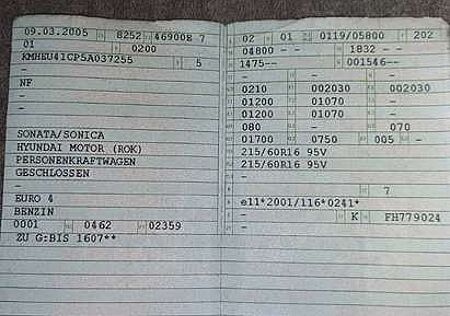 09.03.2005 8252 46900E 7
01 0200
KMHEU41CP5A037255 5
-
NF
-
-
SONATA/SONICA
HYUNDAI MOTOR (ROK)
PERSONENKRAFTWAGEN
GESCHLOSSEN
-
EURO 4
BENZIN
0001 0462 02359
ZU G:BIS 1607**
02 01 0119/05800 202
04800 - - 1832 - -
1475-- 001546--
- - -
0210 002030 002030
01200 01070 -
01200 01070 -
080 - 070
01700 0750 005 -
215/60R16 95V
215/60R16 95V
-
- 7
e11*2001/116*0241*
- K FH779024
-